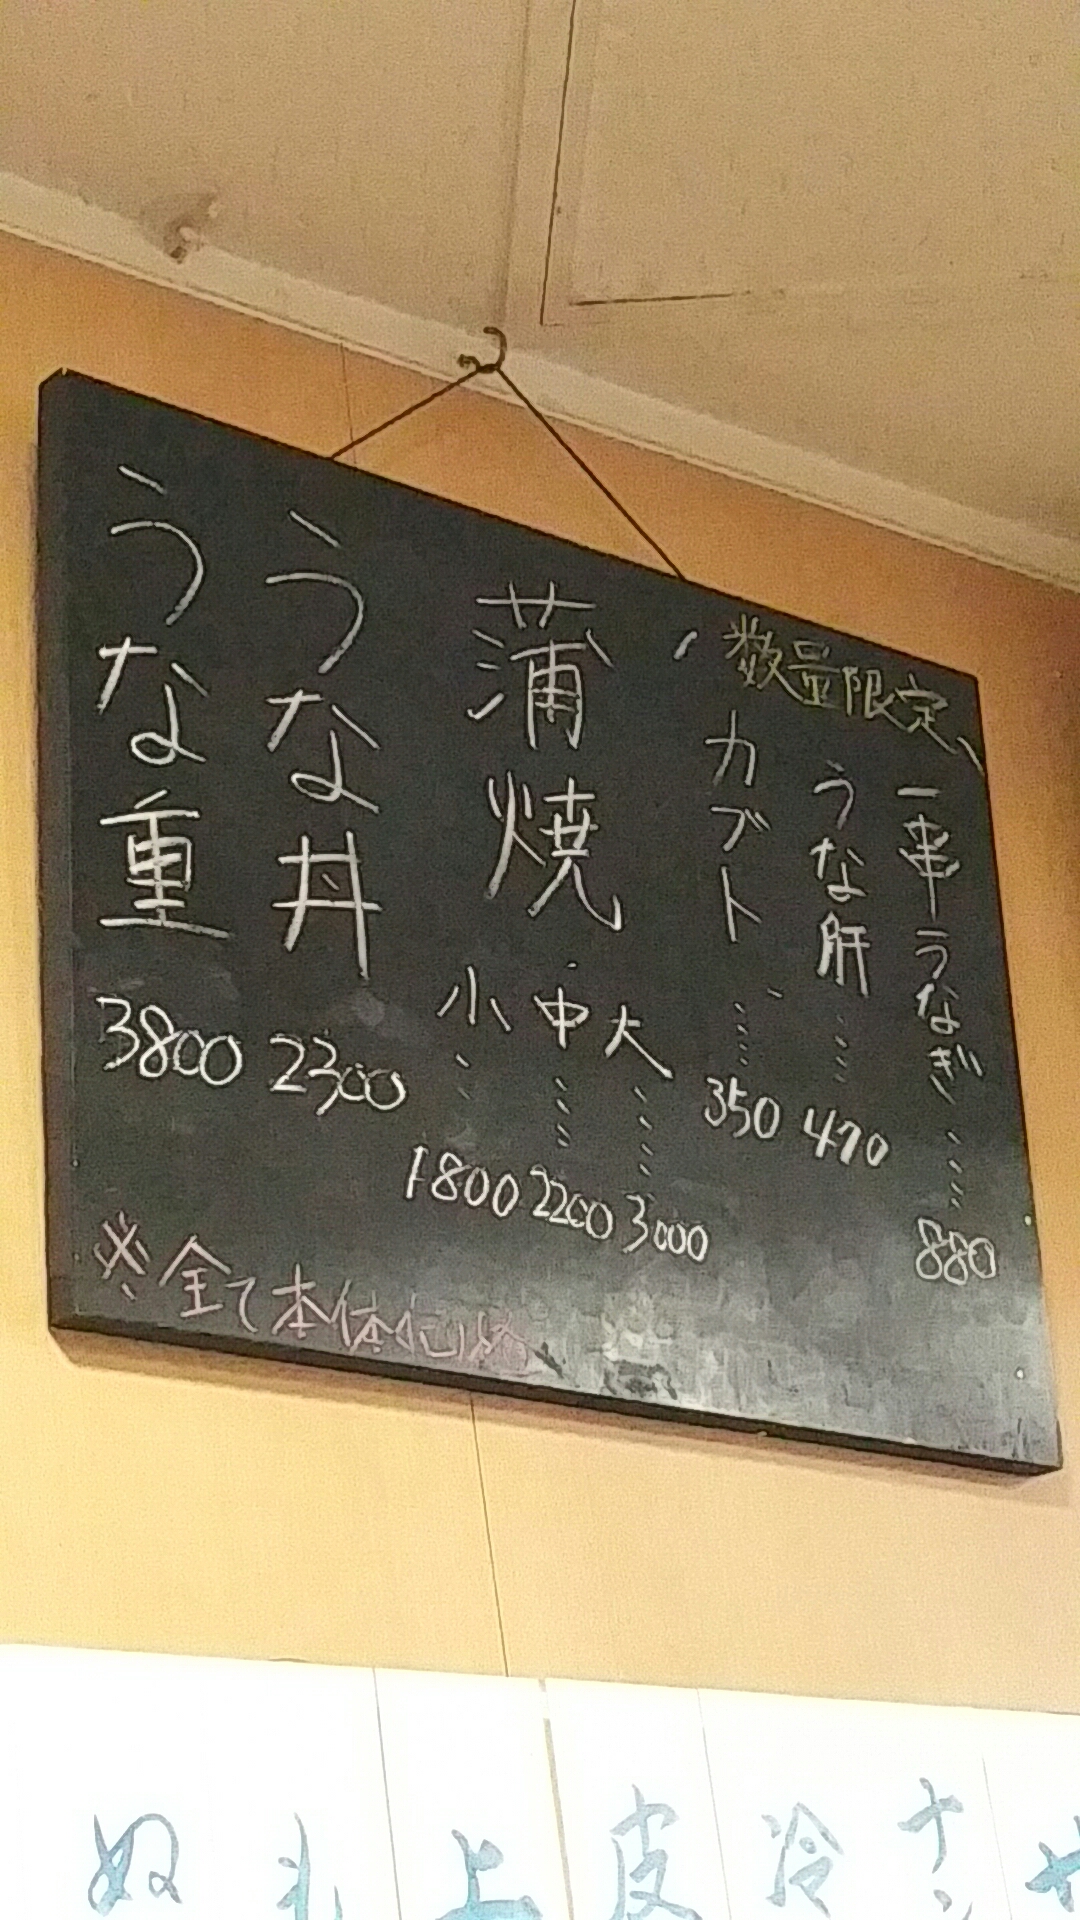 数量限定
一串うなぎ 880
うな肝 470
カブト 350
蒲焼
大 3000
中 2200
小 1800
うな丼 2300
うな重 3800
※全て本体価格
冷
皮
上
奴